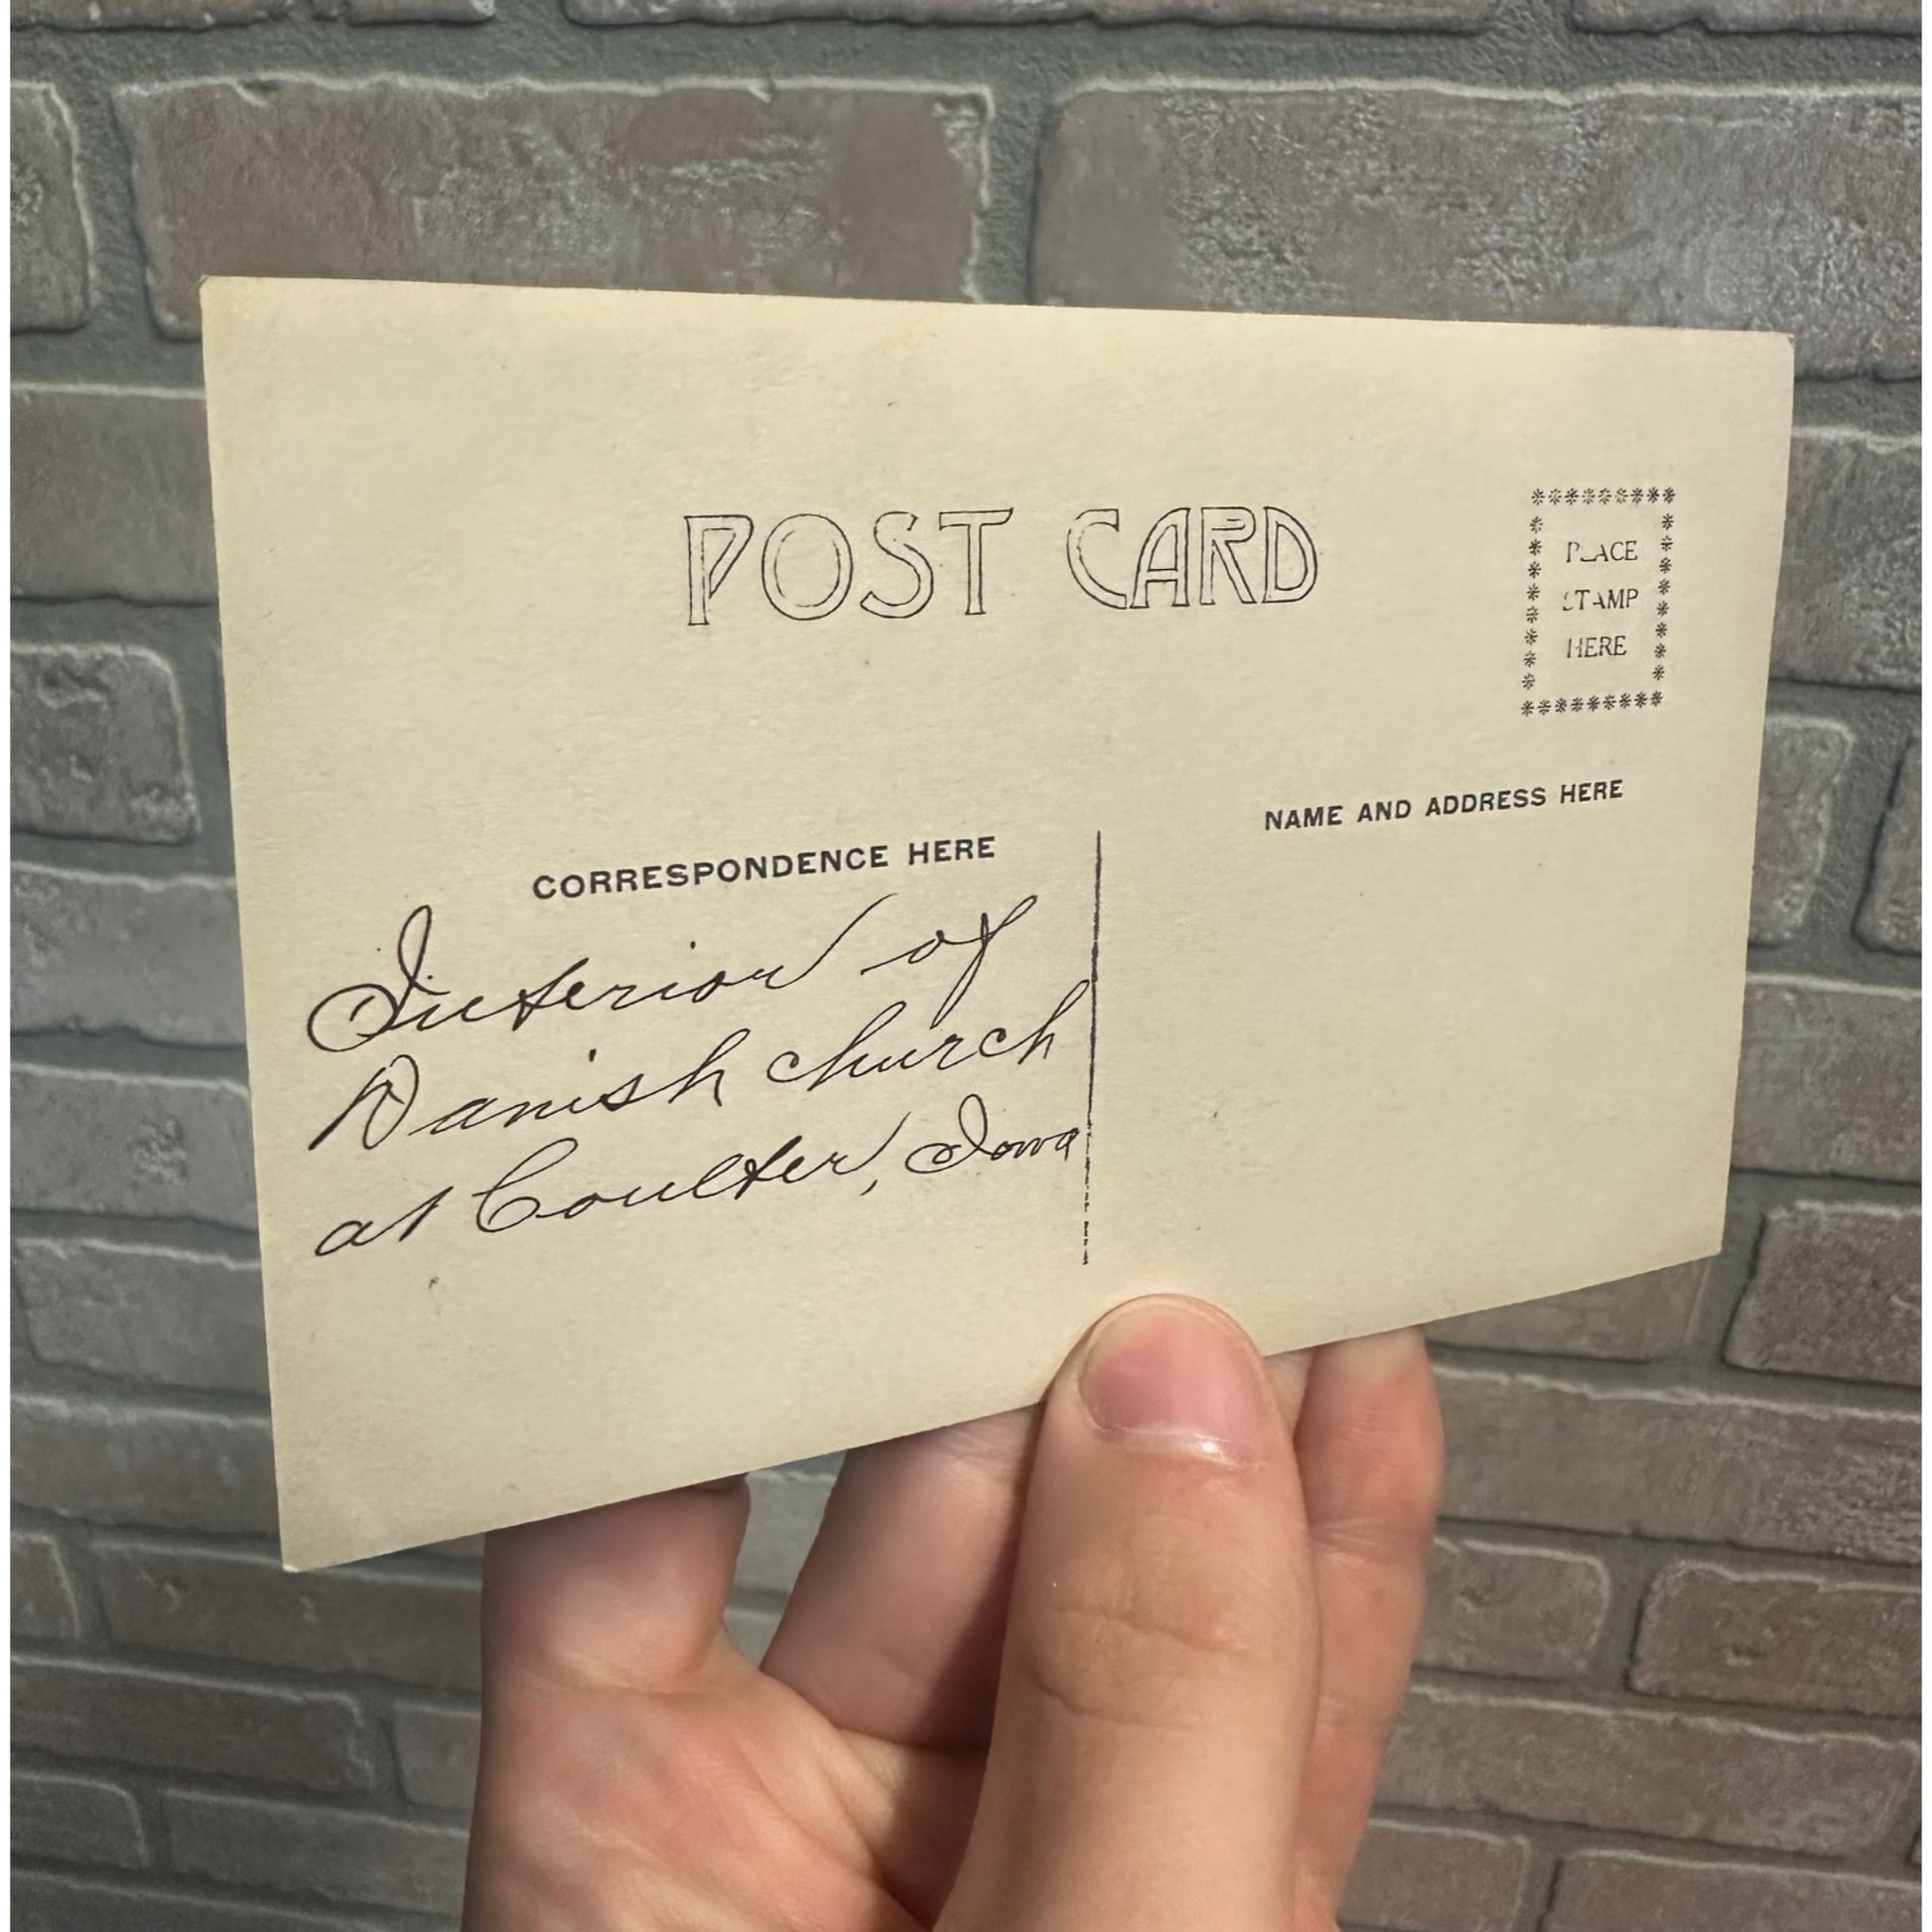 POST CARD
PLACE
STAMP
HERE
CORRESPONDENCE HERE
NAME AND ADDRESS HERE
Interior of
Danish church
at Coulter, Iowa